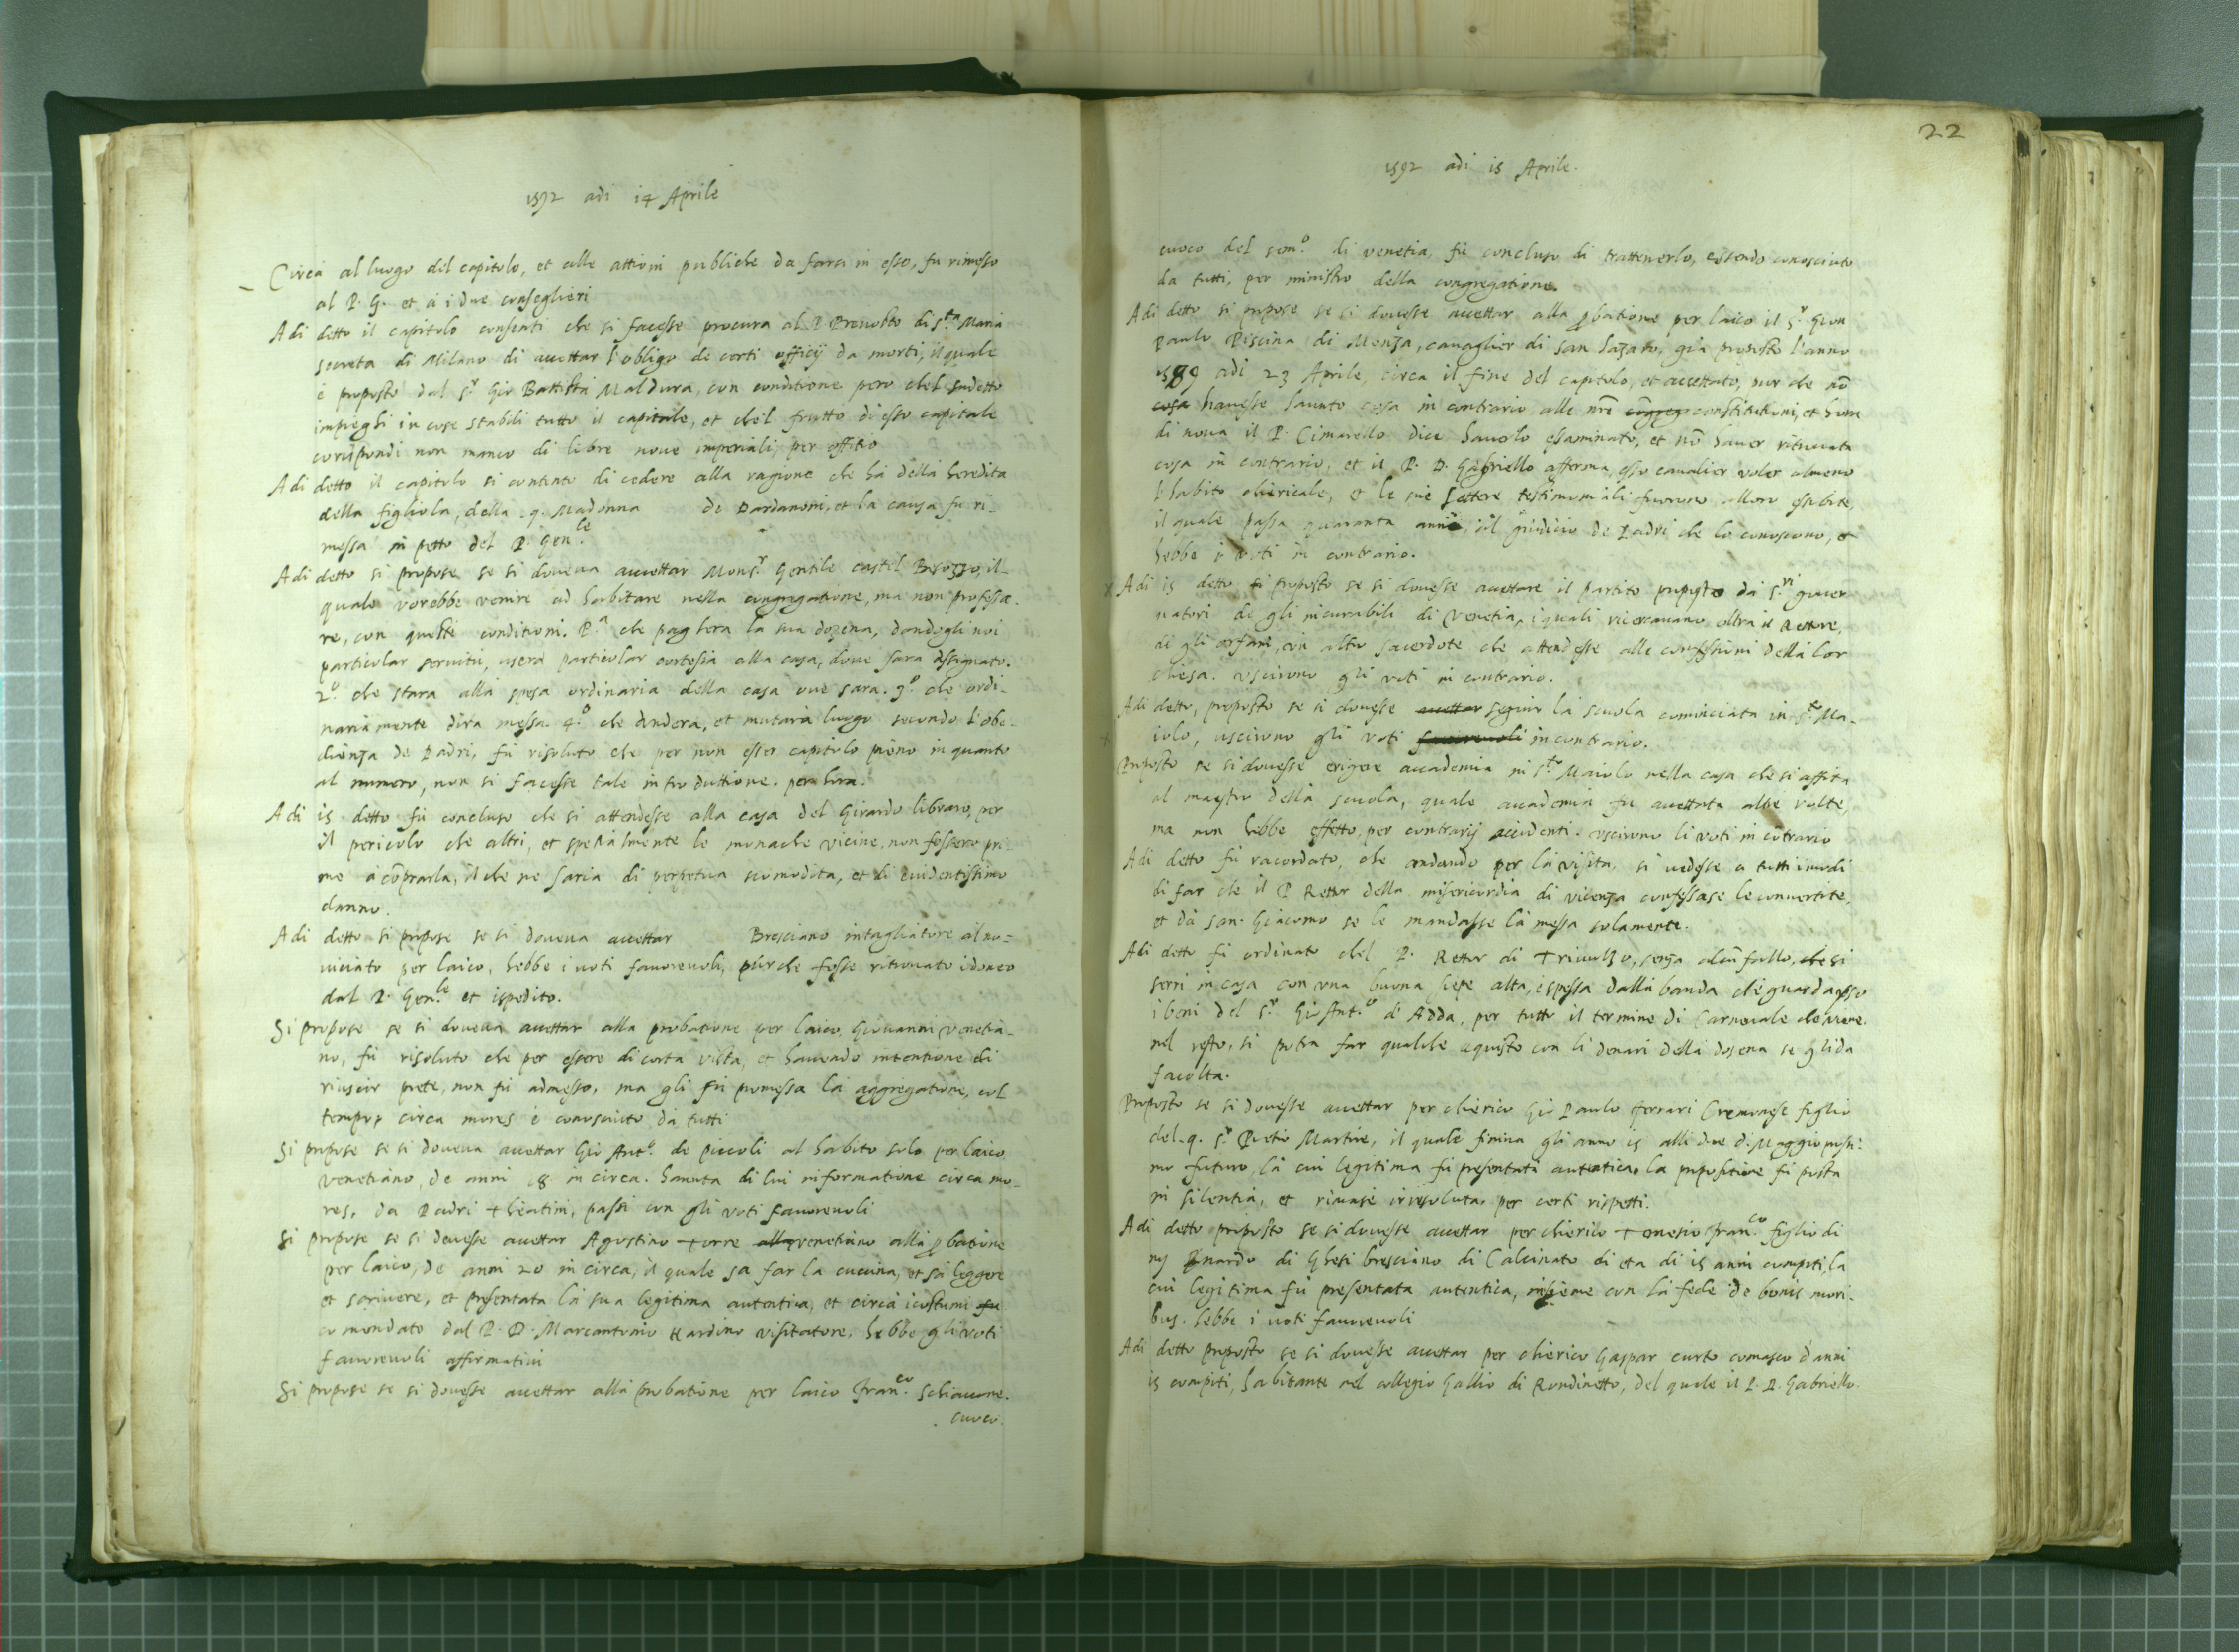 1592 adi 14 Aprile
Circa al luogo dil capitolo, et alle attioni publiche da farsi in esso, fu rimesso
al P. G. et a i due conseglieri
Adi detto il capitolo consentì che si facesse procura al P Prevosto di S.ta Maria
secreta di Milano di accettar l'obligo de certi officij da morti, il quale
è proposto dal S.r Gio Battista Maldura, con conditione pero chel sudetto
impieghi in cose stabili tutto il capitale, et chel frutto di esso capitale
corispondi non manco di libre nove imperiali, per offitio
Adi detto il capitolo si contentò di cedere alla ragione che hà della heredita
della figliola, della q. Madonna de Dardanoni, et la causa fu ri-
messa in petto del P. Gen.le
Adi detto si propose se si doveva accettar Mons.r Gentile castel Besozzo, il
quale vorebbe venire ad habitare nella congregatione, ma non professa-
re, con queste conditioni. P.a che paghera la sua dozena, dandogli noi
particolar servitù, userà particolar cortesia alla casa, dove sara assignato.
2.o che stara alla spesa ordinaria della casa ove sara. 3.o che ordi-
nariamente dira messa. 4.o che andera, et mutarà luogo secondo l'obe-
dienza de Padri, fù risoluto che per non esser capitolo pieno in quanto
al numero, non si facesse tale introduttione. per hora.
Adi 15 detto fù concluso che si attendesse alla casa del Girardo libraro, per
il pericolo che altri, et spetialmente le monache vicine, non fossero pri-
me a cõprarla, il che ne saria di perpetua scomodita, et di evidentissimo
danno.
Adi detto si propose se si doveva accettar Bresciano intagliatore al no=
viciato per laico, hebbe i voti favorevoli, purche fosse ritrovato idoneo
dal P. Gen.le et ispedito.
Si propose se si doveva accettar alla probatione per laico, Giovanni venetia-
no, fù risoluto che per essere di corta vista, et havendo intentione di
riuscir prete, non fù admesso, ma gli fù promessa la aggregatione, col
tempo, circa mores è conosciuto da tutti
Si propose se si doveva accettar Gio Ant.o de piccoli al habito solo per laico
venetiano, de anni 18 in circa. havuta di lui informatione circa mo-
res, da Padri Theatini, passi con gli voti favorevoli
Si propose se si devesse accettar Agustino Torre alla venetiano alla ꝓbatione
per laico, de anni 20 in circa, il quale sa far la cucina, et sà leggere
et scrivere, et presentata la sua legitima autentica, et circa i costumi fu
comendato dal P. D. Marcantonio Nardino visitatore, hebbe gli voti
favorevoli affirmativi
Si propose se si dovesse accettar alla probatione per laico Fran.co Schiavone.
cuoco.
22
1592 adi 15 Aprile.
cuoco del sem.o di venetia, fù concluso di trattenerlo, essendo conosciuto
da tutti, per ministro della congregatione.
Adi detto si propose se si dovesse accettar alla ꝓbatione per laico il S.r Gion
Paulo Piscina di Monza, cavaglier di san Lazaro, già proposto l'anno
1589 adi 23 Aprile, circa il fine del capitolo, et accettato, pur che nõ
cosa havesse havuto cosa in contrario alle nrẽ cõgreg constitutioni, et hora
di nova il P. Cimarello dice haverlo essaminato, et nõ haver ritrovata
cosa in contrario, et il P. D. Gabriello afferma, esso cavalier voler almeno
l'habito chiericale, et le sue lettere testimoniali furono allora essibite,
il quale passa quaranta anni, al giudicio de Padri che lo conoscono, et
hebbe i voti in contrario.
x Adi 15 detto fù proposto se si dovesse accettare il partito proposto da S.ri gover
natori de gli incurabili di Venetia, i quali ricercavano oltra il Rettore,
di gli orfani, un altro sacerdote che attendesse alle confessioni della lor
chiesa. uscirono gli voti in contrario.
Adi detto, proposto se si dovesse accettar seguir la scuola cominciata in S.to Ma-
x iolo, uscirono gli voti favorevoli in contrario.
Proposto se si dovesse erigere accademia in S.to Maiolo nella casa che si affita
al maestro della scuola, quale accademia fu accettata altre volte,
ma non hebbe effetto, per contrarij accidenti. uscirono li voti in cõtrario
Adi detto fù racordato, che andando per la visita, si vedesse a tutti i modi
di far che il P Rettor della misericordia di vicenza confessase le convertite,
et da san Giacomo se le mandasse la messa solamente.
Adi detto fù ordinato chel P. Rettor di Trivulzo, senza alcũ fallo, che si
serri in casa con una buona siepe alta, è spessa dalla banda che guarda verso
i beni del S.r Gio Ant.o d'Adda, per tutto il termine di Carnevale che viene.
nel resto, si potra far qualche aquisto con li denari della dosena se gli da
facolta.
Proposto se si dovesse accettar per chierico Gio Paulo ferrari Cremonese figlio
del q. S.r Pietro Martire, il quale finira gli anno 15 alli due di Maggio prossi-
mo futuro, la cui legitima fù presentata autentica, la propositione fù posta
in silentia, et rimase irresoluta, per certi rispetti.
Adi detto proposto se si dovesse accettar per chierico Tomasio Fran.co figlio di
di Ghesi bresciano di Calcinato di eta di 15 anni compiti, la
cui legitima fù presentata autentica, insieme con la fede de bonis mori-
bus. hebbe i voti favorevoli
Adi detto proposto se si dovesse accettar per chierico Gaspar curto comasco d'anni
15 compiti, habitante nel collegio Gallio di Rondinetto, del quale il P. D. Gabriello.